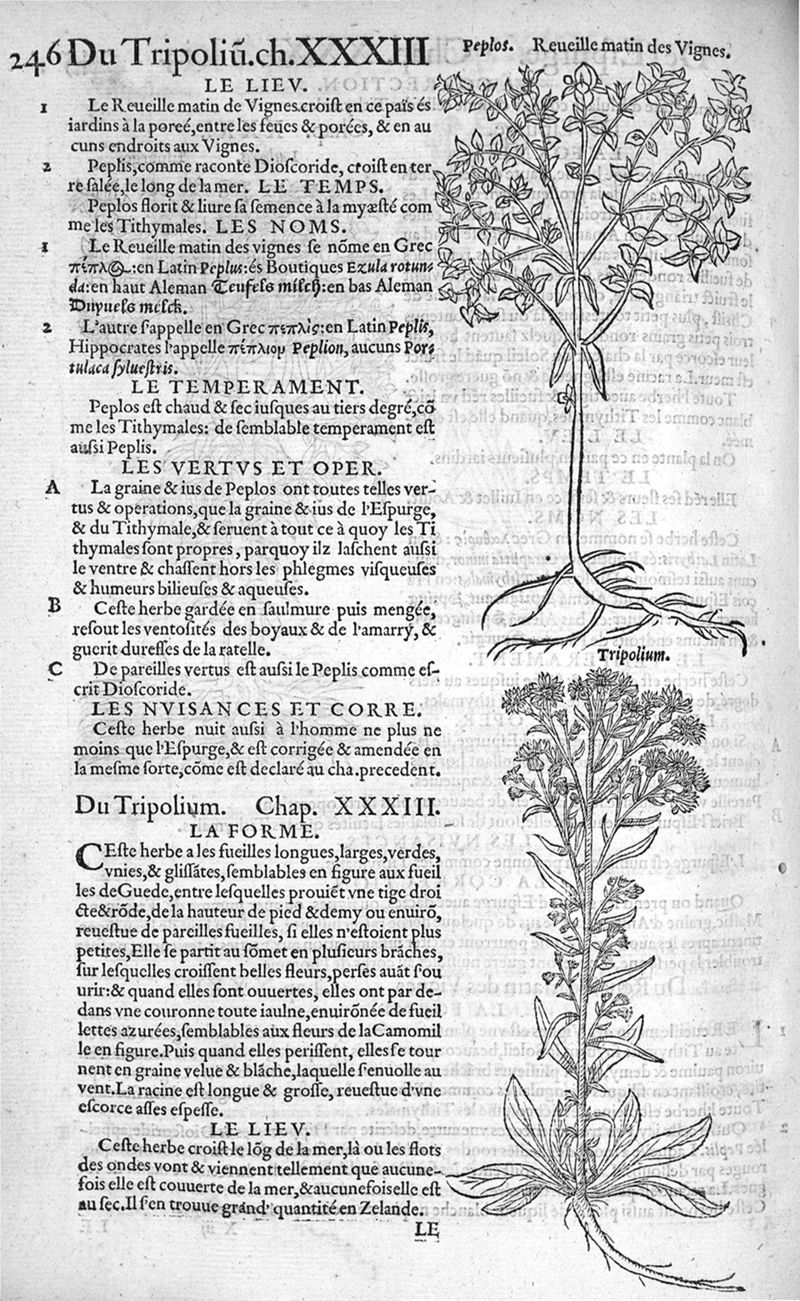 246 Du Tripoliũ.ch.XXXIII
Peplos. Reueille matin des Vignes.
LE LIEV.
1 Le Reueille matin de Vignes.croiſt en ce païs és
iardins à la poreé,entre les feues & porées, & en au
cuns endroits aux Vignes.
2 Peplis,comme raconte Dioſcoride, croiſt en ter
re ſalée,le long de la mer. LE TEMPS.
Peplos florit & liure ſa ſemence à la myæſté com
me les Tithymales. LES NOMS.
1 Le Reueille matin des vignes ſe nõme en Grec
:en Latin Peplus:és Boutiques Ezula rotun-
da:en haut Aleman Teufels milch:en bas Aleman
Duyuels melck.
2 L'autre ſappelle en Grec πεπλὶς:en Latin Peplis,
Hippocrates l'appelle πέπλιον Peplion, aucuns Por-
tulaca ſylueſtris.
LE TEMPERAMENT.
Peplos eſt chaud & ſec iuſques au tiers degré,cõ
me les Tithymales: de ſemblable temperament eſt
auſsi Peplis.
LES VERTVS ET OPER.
A La graine & ius de Peplos ont toutes telles ver-
tus & operations,que la graine & ius de l'Eſpurge,
& du Tithymale,& ſeruent à tout ce à quoy les Ti
thymales ſont propres, parquoy ilz laſchent auſsi
le ventre & chaſſent hors les phlegmes viſqueuſes
& humeurs bilieuſes & aqueuſes.
B Ceſte herbe gardée en ſaulmure puis mengée,
reſout les ventoſités des boyaux & de l'amarry, &
guerit dureſſes de la ratelle.
C De pareilles vertus eſt auſsi le Peplis comme eſ-
crit Dioſcoride.
LES NVISANCES ET CORRE.
Ceſte herbe nuit auſsi à l'homme ne plus ne
moins que l'Eſpurge,& eſt corrigée & amendée en
la meſme ſorte,cõme eſt declaré au cha.precedent.
Tripolium.
Du Tripolium. Chap. XXXIII.
LA FORME.
CEſte herbe a les fueilles longues,larges,verdes,
vnies,& gliſſãtes,ſemblables en figure aux fueil
les de Guede,entre leſquelles prouiẽt vne tige droi
cte & rõde,de la hauteur de pied & demy ou enuirõ,
reueſtue de pareilles fueilles, ſi elles n'eſtoient plus
petites,Elle ſe partit au ſõmet en pluſieurs brãches,
ſur leſquelles croiſſent belles fleurs,perſes auãt ſou
urir:& quand elles ſont ouuertes, elles ont par de-
dans vne couronne toute iaulne,enuirõnée de fueil
lettes azurées,ſemblables aux fleurs de la Camomil
le en figure.Puis quand elles periſſent, elles ſe tour
nent en graine velue & blãche,laquelle ſenuolle au
vent.La racine eſt longue & groſſe, reueſtue d'vne
eſcorce aſſes eſpeſſe.
LE LIEV.
Ceſte herbe croiſt le lõg de la mer,là ou les flots
des ondes vont & viennent tellement que aucune-
fois elle eſt couuerte de la mer,& aucunefois elle eſt
au ſec.Il ſ'en trouue grand' quantité en Zelande.
LE